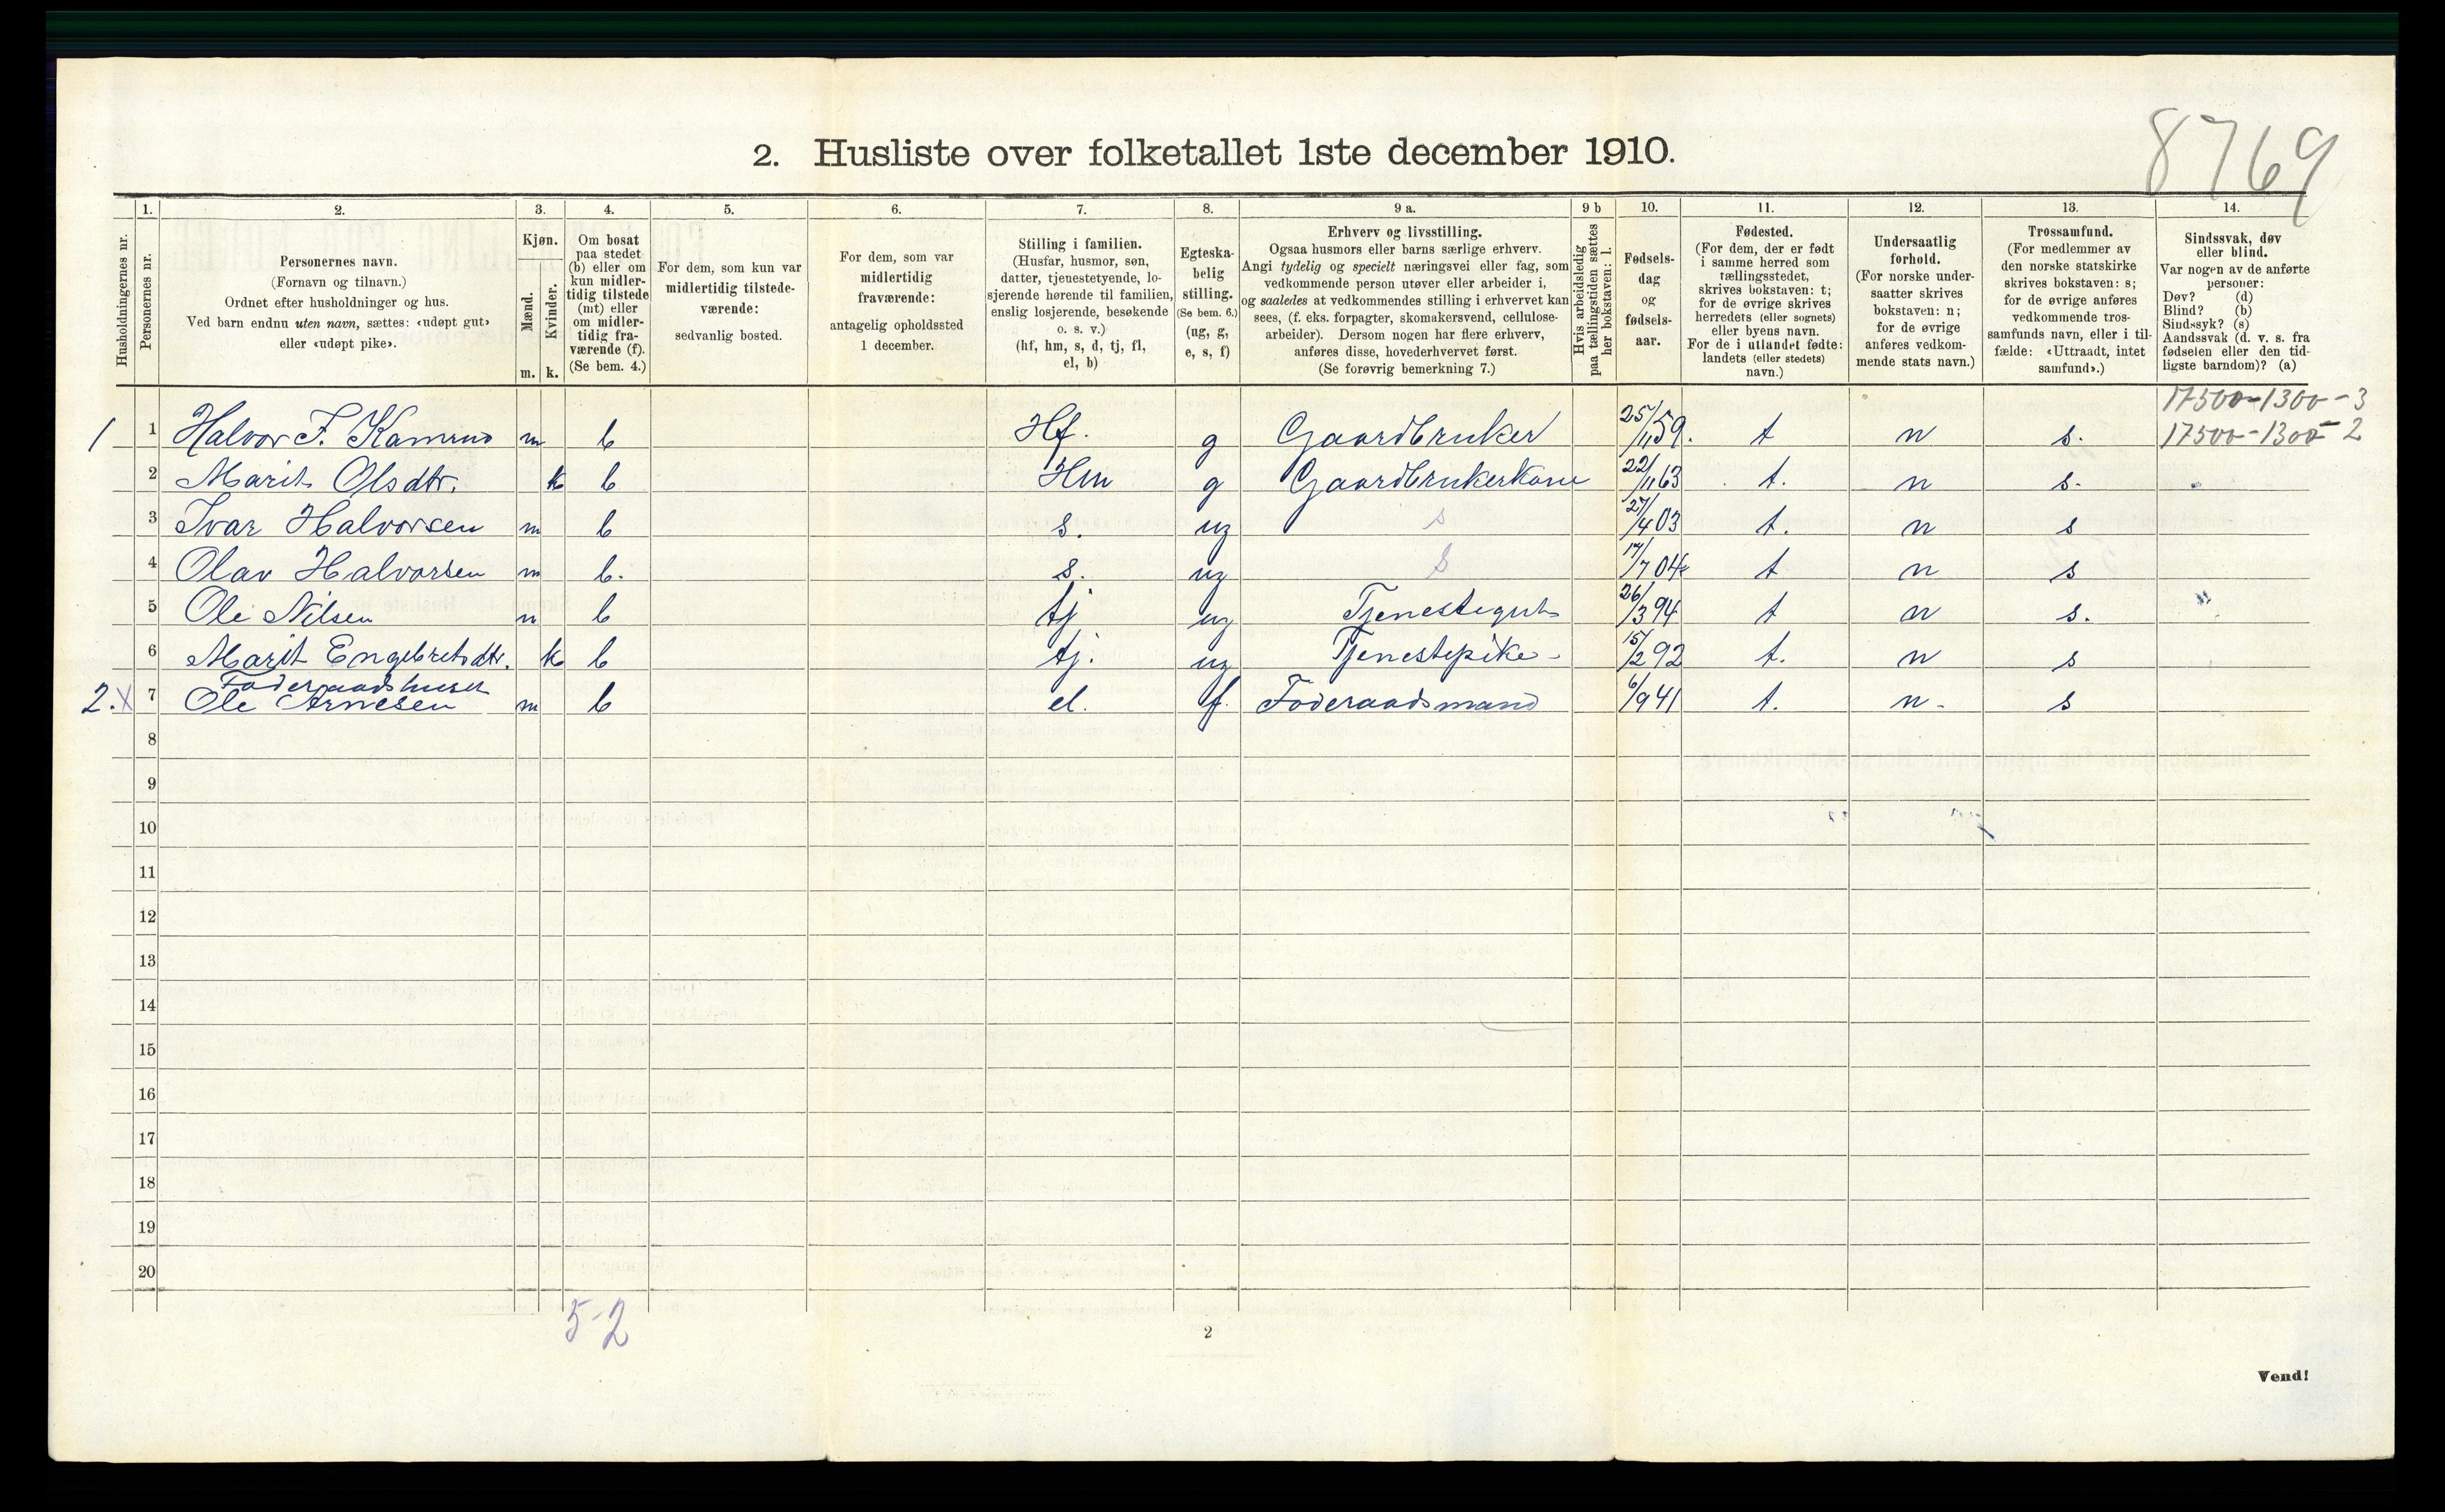 8769
2. Husliste over folketallet 1ste december 1910.
Husholdningernes nr.
1.
Personernes nr.
2.
Personernes navn.
(Fornavn og tilnavn.)
Ordnet efter husholdninger og hus.
Ved barn endnu uten navn, sættes: «udøpt gut»
eller «udøpt pike».
3.
Kjøn.
Mænd.
Kvinder.
m. k.
4.
Om bosat
paa stedet
(b) eller om
kun midler-
tidig tilstede
(mt) eller
om midler-
tidig fra-
værende (f).
(Se bem. 4.)
5.
For dem, som kun var
midlertidig tilstede-
værende:
sedvanlig bosted.
6.
For dem, som var
midlertidig
fraværende:
antagelig opholdssted
1 december.
7.
Stilling i familien.
(Husfar, husmor, søn,
datter, tjenestetyende, lo-
sjerende hørende til familien,
enslig losjerende, besøkende
o. s. v.)
(hf, hm, s, d, tj, fl,
el, b)
8.
Egteska-
belig
stilling.
(Se bem. 6.)
(ug, g,
e, s, f)
9 a.
Erhverv og livsstilling.
Ogsaa husmors eller barns særlige erhverv.
Angi tydelig og specielt næringsvei eller fag, som
vedkommende person utøver eller arbeider i,
og saaledes at vedkommendes stilling i erhvervet kan
sees, (f. eks. forpagter, skomakersvend, cellulose-
arbeider). Dersom nogen har flere erhverv,
anføres disse, hovederhvervet først.
(Se forøvrig bemerkning 7.)
9 b
Hvis arbeidsledig
paa tællingstiden sættes
her bokstaven: l.
10.
Fødsels-
dag
og
fødsels-
aar.
11.
Fødested.
(For dem, der er født
i samme herred som
tællingsstedet,
skrives bokstaven: t;
for de øvrige skrives
herredets (eller sognets)
eller byens navn.
For de i utlandet fødte:
landets (eller stedets)
navn.)
12.
Undersaatlig
forhold.
(For norske under-
saatter skrives
bokstaven: n;
for de øvrige
anføres vedkom-
mende stats navn.)
13.
Trossamfund.
(For medlemmer av
den norske statskirke
skrives bokstaven: s;
for de øvrige anføres
vedkommende tros-
samfunds navn, eller i til-
fælde: «Uttraadt, intet
samfund».)
14.
Sindssvak, døv
eller blind.
Var nogen av de anførte
personer:
Døv? (d)
Blind? (b)
Sindssyk? (s)
Aandssvak (d. v. s. fra
fødselen eller den tid-
ligste barndom)? (a)
17500-1300-3
1 1 Halvor F. Kamrud m b Hf. g Gaardbruker 25/11 59. t n s. 17500-1300-2
2 Marit Olsdtr. k b Hm g Gaardbrukerkone 22/11 63 t. n s.
3 Ivar Halvorsen m b s. ug s 27/4 03 t. n s
4 Olav Halvorsen m b. s. ug s 17/7 04 t n s
5 Ole Nilsen m b tj ug Tjenestegut 26/3 94 t n s.
6 Marit Engebretsdtr. k b tj. ug Tjenestepike - 15/2 92 t. n s
Føderaadshuset
2. x 7 Ole Arnesen m b el. f. Føderaadsmand 6/9 41 t. n. s
8
9
10
11
12
13
14
15
16
17
18
19
20
5-2
2
Vend!